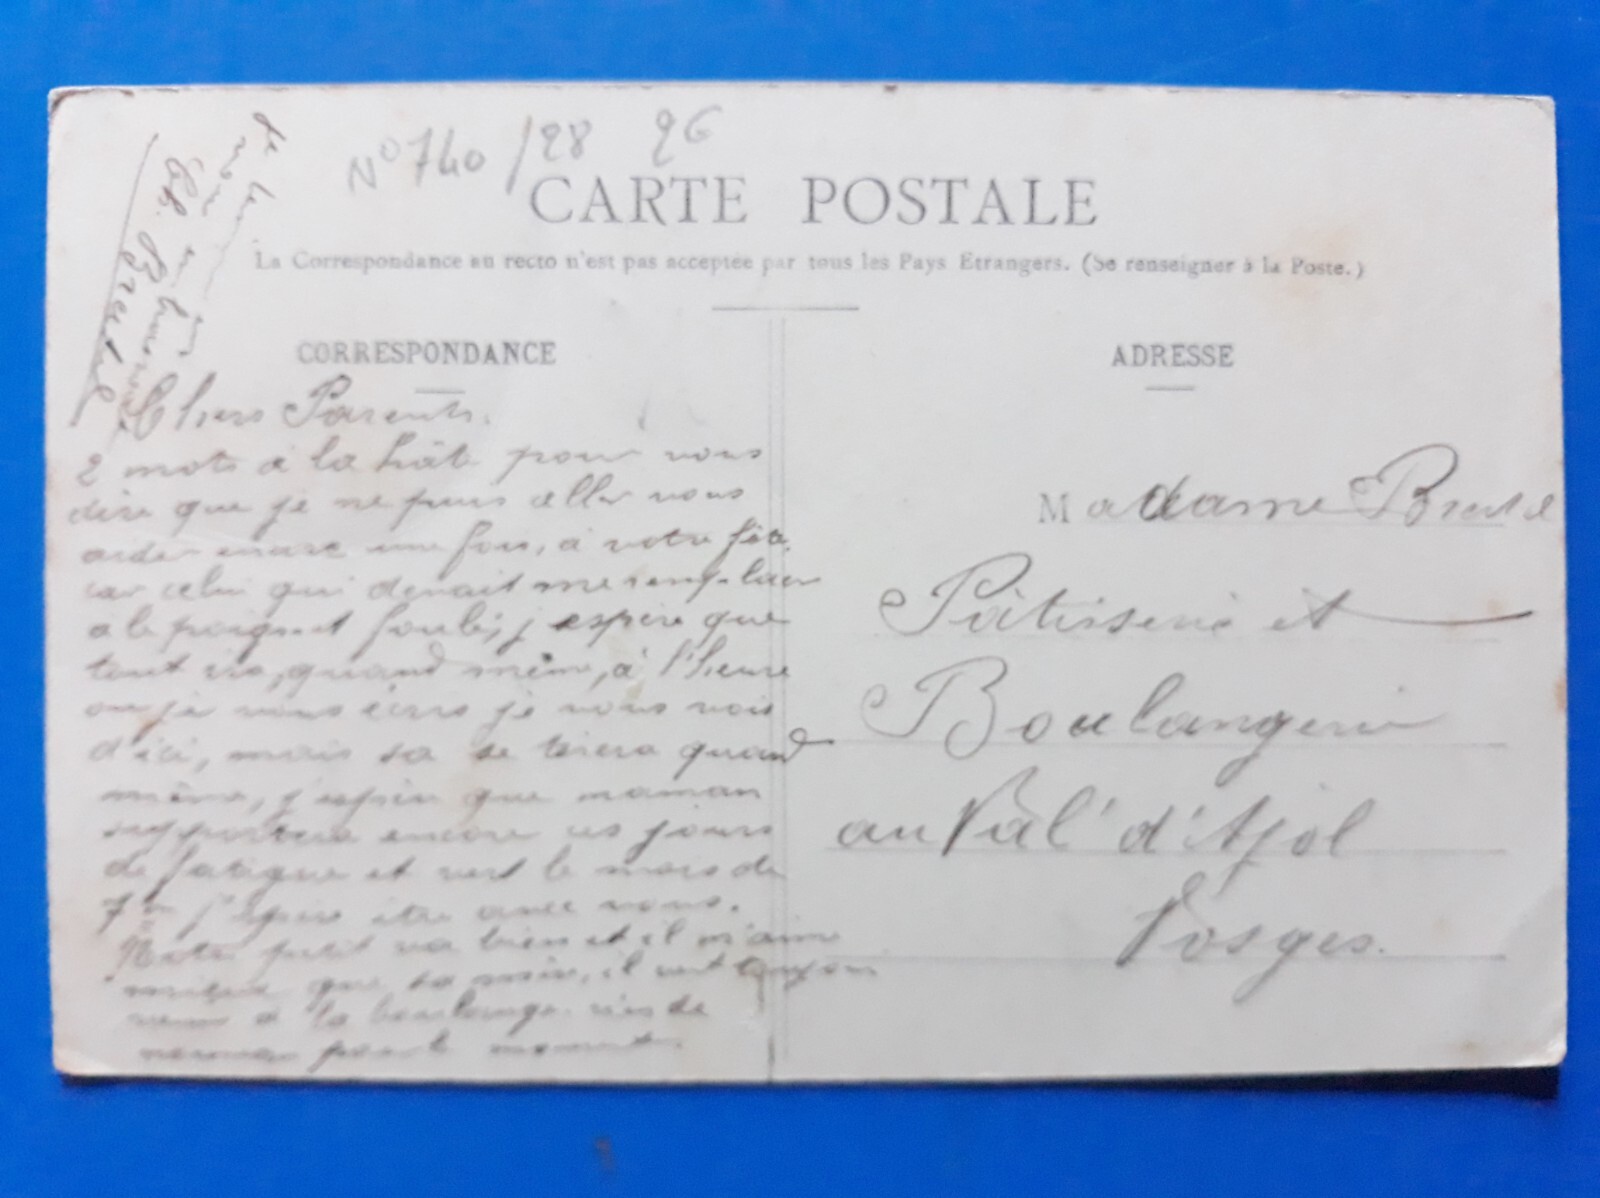 N° 740 / 28 26
CARTE POSTALE
La Correspondance au recto n'est pas acceptée par tous les Pays Etrangers. (Se renseigner à la Poste.)
CORRESPONDANCE
ADRESSE
Chers Parents.
2 mots à la hâte pour vous
dire que je ne puis aller vous
aider encore une fois, à votre fête
car celui qui devait me remplacer
a le poignet foulé, j'espère que
tout ira, quand même, à l'heure
ou je vous écris je vous vois
d'ici, mais sa se tirera quand
même, j'espère que maman
supportera encore ces jours
de fatigue et vert le mois de
7bre j'espère être avec vous.
Notre petit va bien et il m'aime
mieux que sa mère, il veut toujours
venir à la boulange. rien de
nouveau pour le moment.
Madame
Pâtisserie et
Boulangerie
au Val' d'Ajol
Vosges.